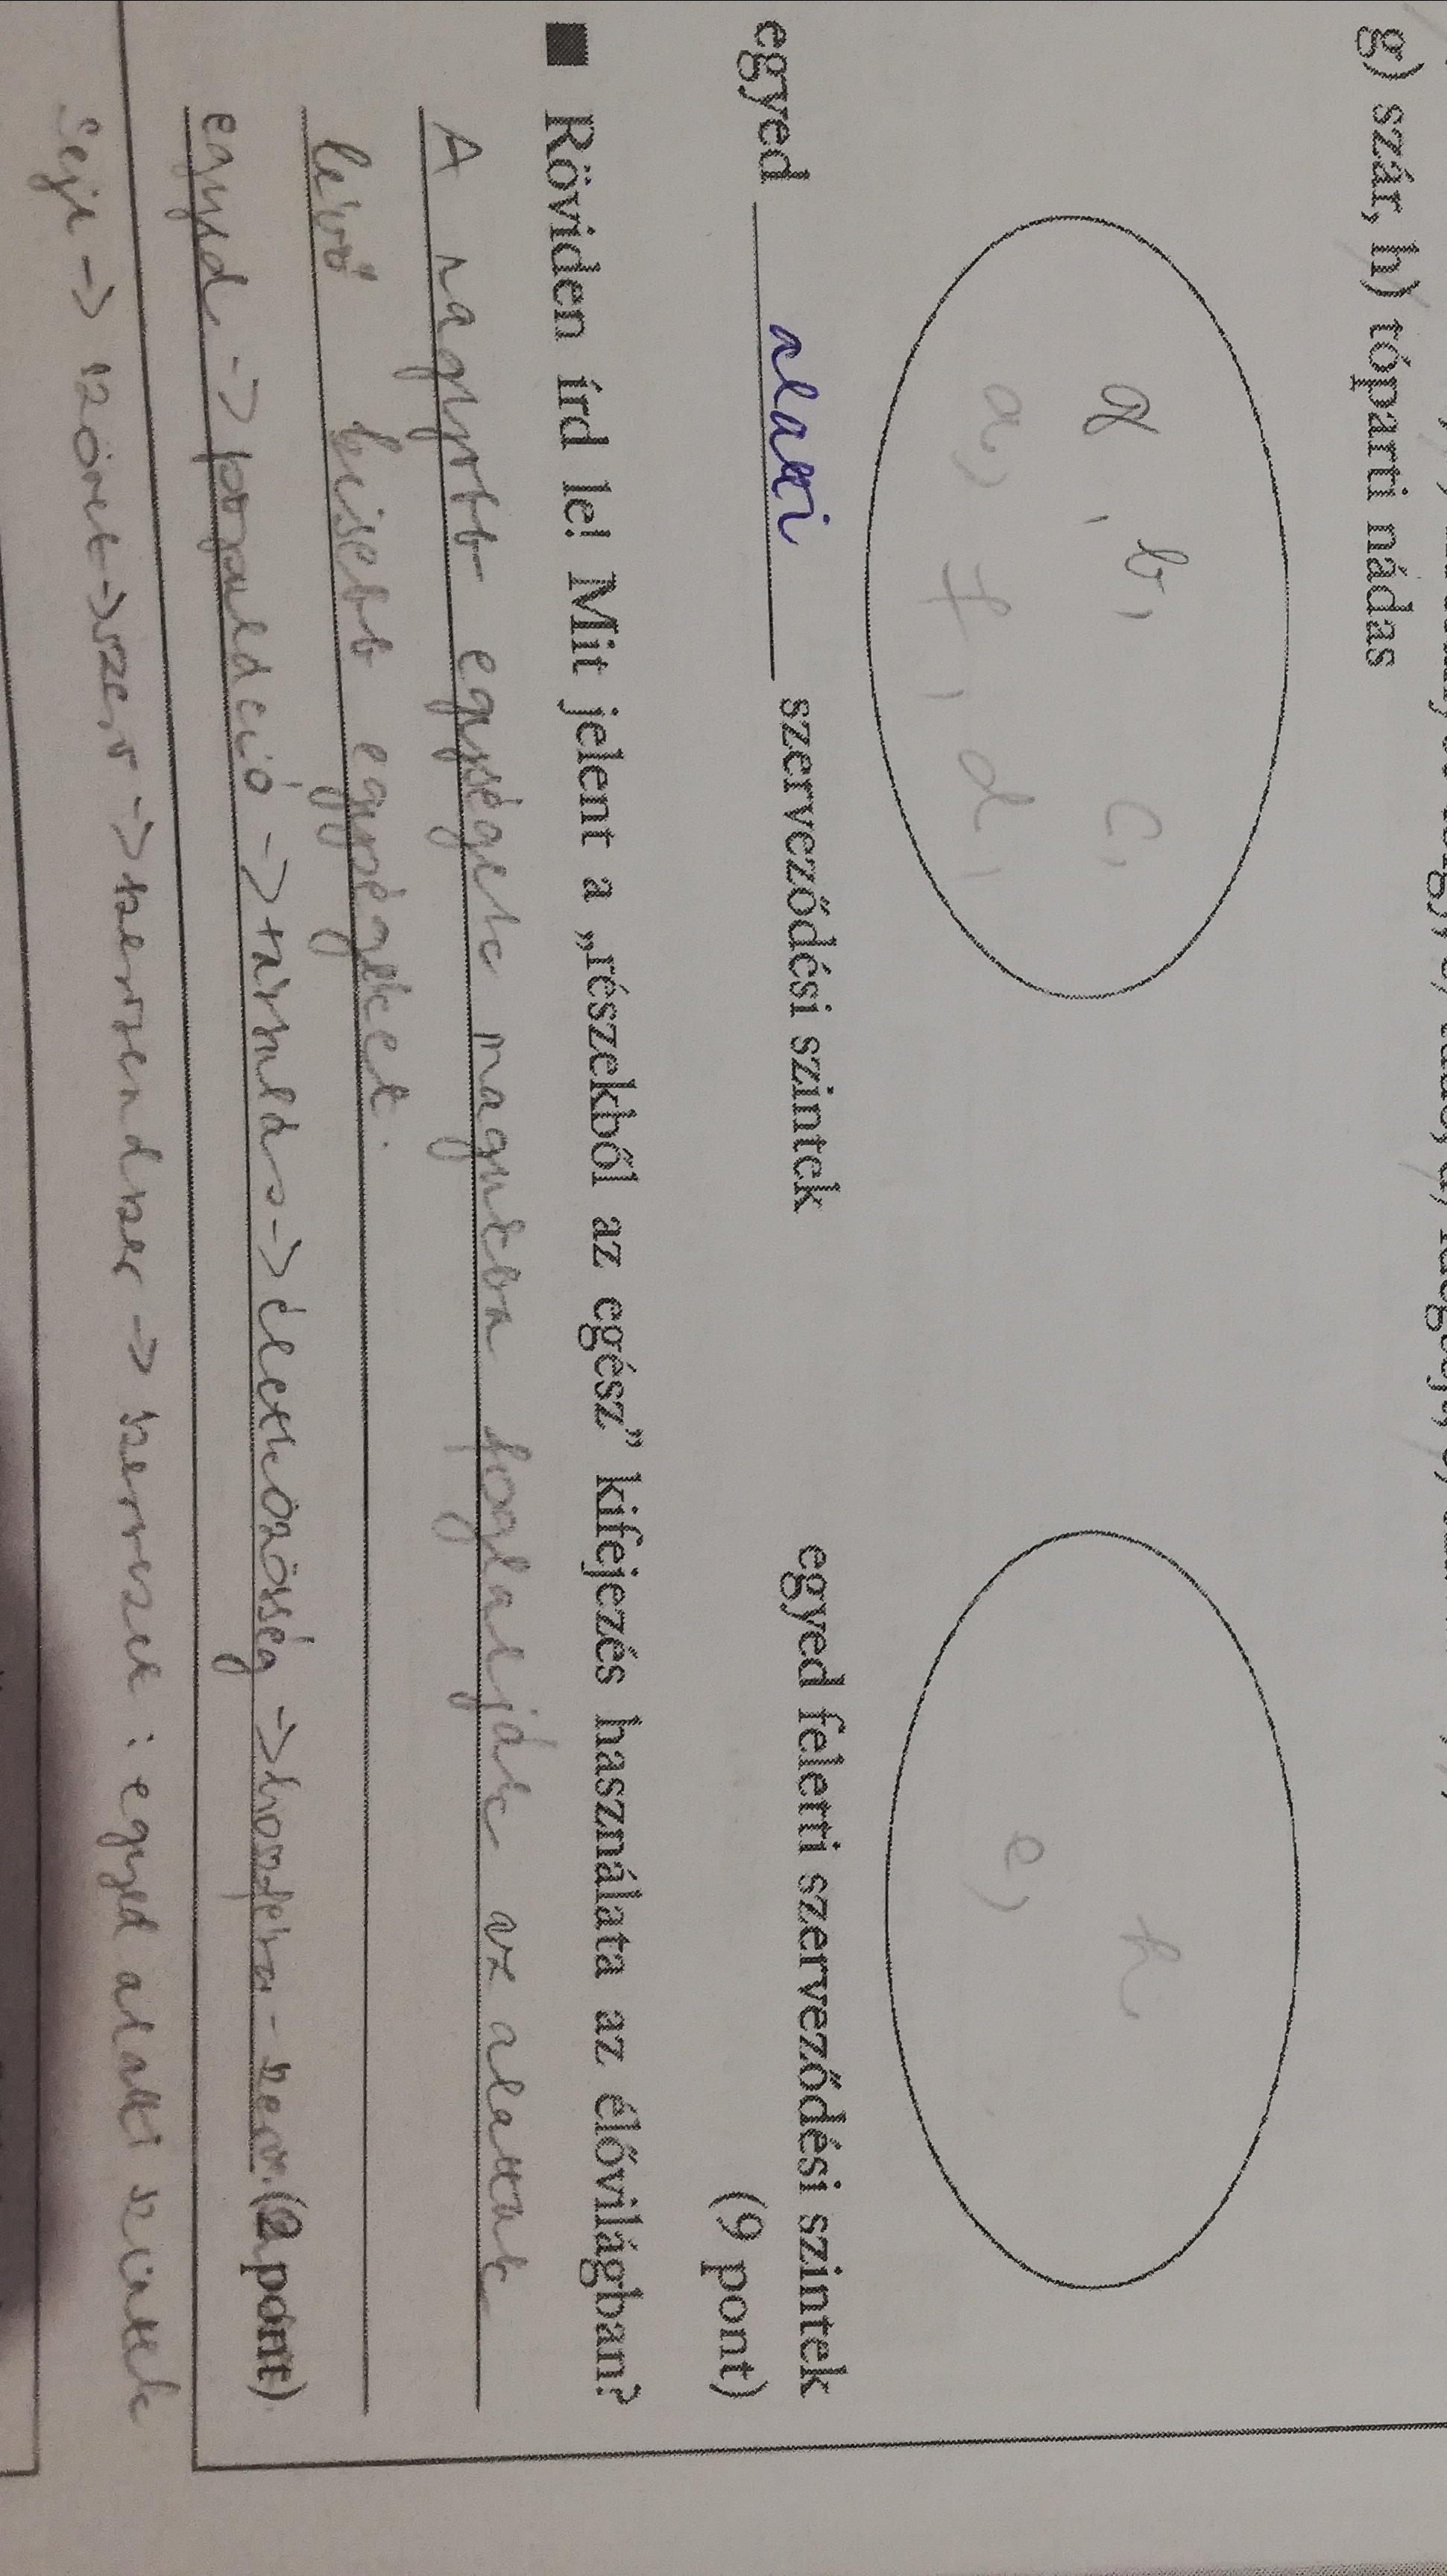 g) szár, h) tóparti nádas
g, b, c,
a, f, d,
h
e,
egyed alatti szerveződési szintek
egyed feletti szerveződési szintek
(9 pont)
■ Röviden írd le! Mit jelent a „részekből az egész” kifejezés használata az élővilágban?
A nagyobb egységek magukba foglalják az alattuk
lévő kisebb egységeket.
egyed -> populáció -> társulás -> életközösség -> bioszféra (2 pont)
Sejt -> szövet -> szerv -> szervrendszer -> szervezet : egyed alatti szintek